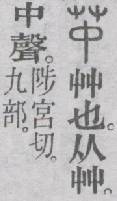 艸也。从艸。
中聲。
陟宮切。
九部。